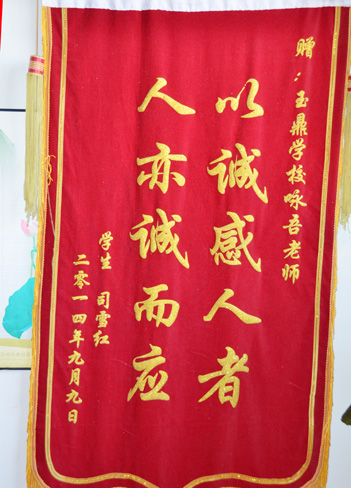 赠：玉鼎学校咏吾老师
以诚感人者
人亦诚而应
学生 司雪红
二零一四年九月九日